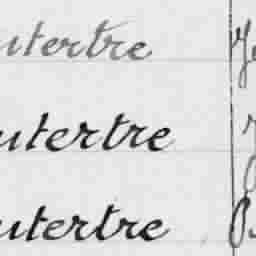 utertre
utertre
utertre